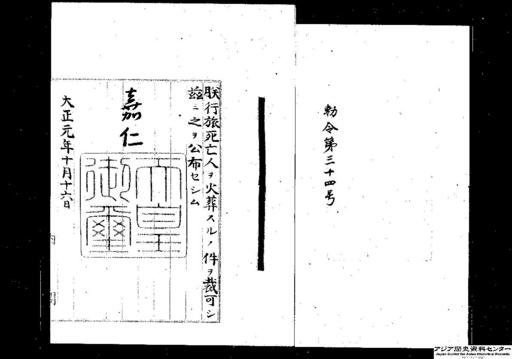 勅令第三十四号
朕行旅死亡人ヲ火葬スルノ件ヲ裁可シ
茲ニ之ヲ公布セシム
嘉仁
天皇
御璽
大正元年十月十六日
内閣
アジア歴史資料センター
Japan Center for Asian Historical Records